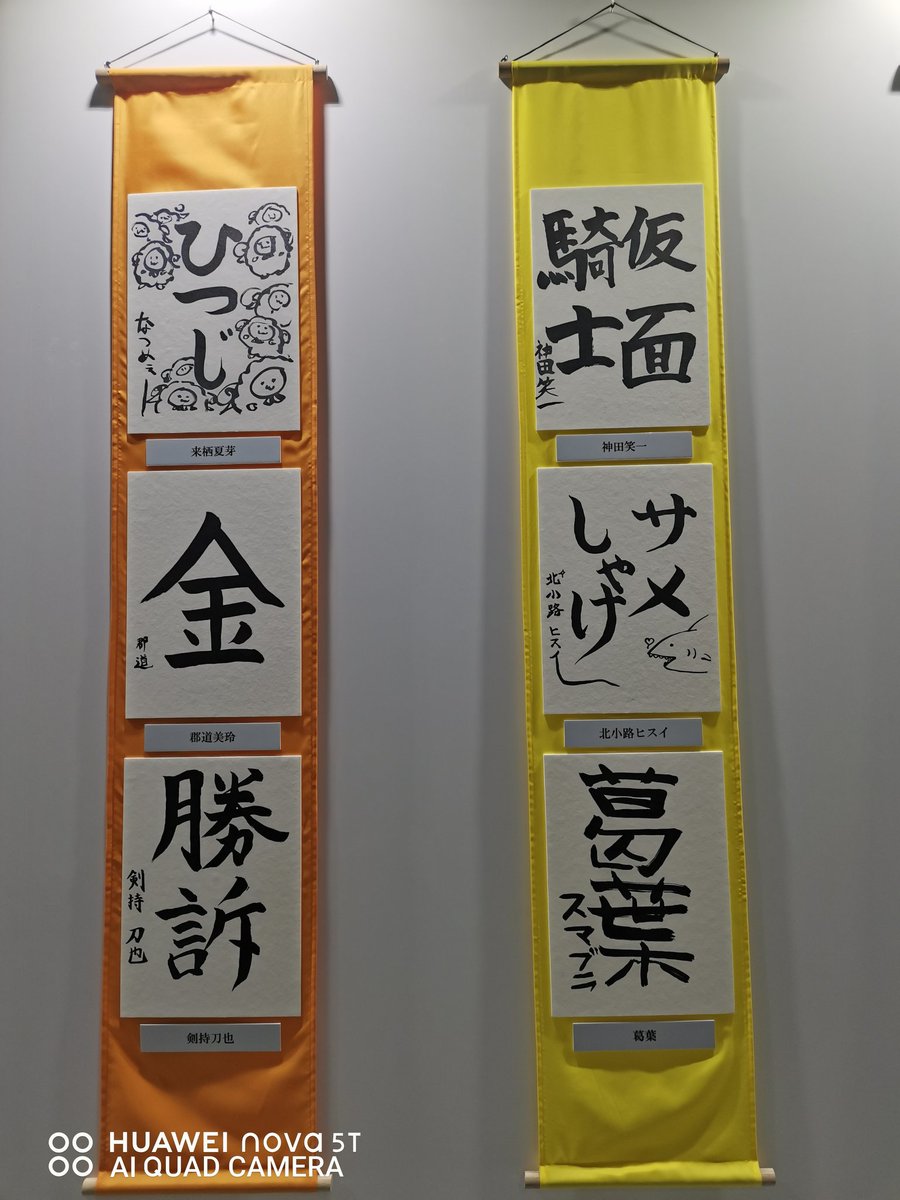 ひつじ
なつめぇ
来栖夏芽
金
郡道
郡道美玲
勝訴
剣持 刀也
剣持刀也
仮面
騎士
神田笑一
神田笑一
サメ
しゃけ
北小路 ヒスイ
北小路ヒスイ
葛葉
スマブラ
葛葉
HUAWEI nova 5T
AI QUAD CAMERA